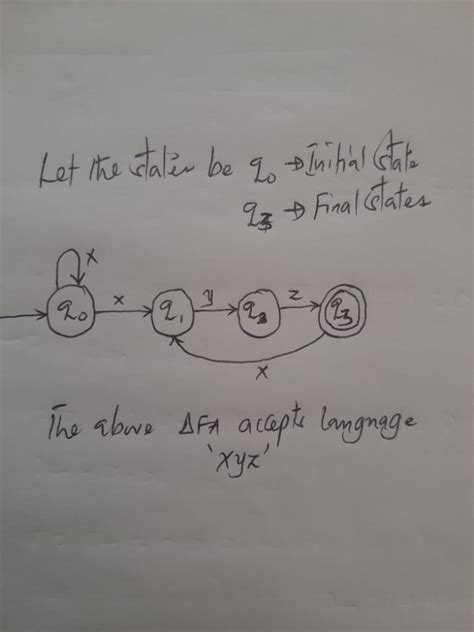 Let the states be q0 → Initial state
q3 → Final states
x
q0 x q1 y q2 z q3
x
The above DFA accepts language
'xyz'